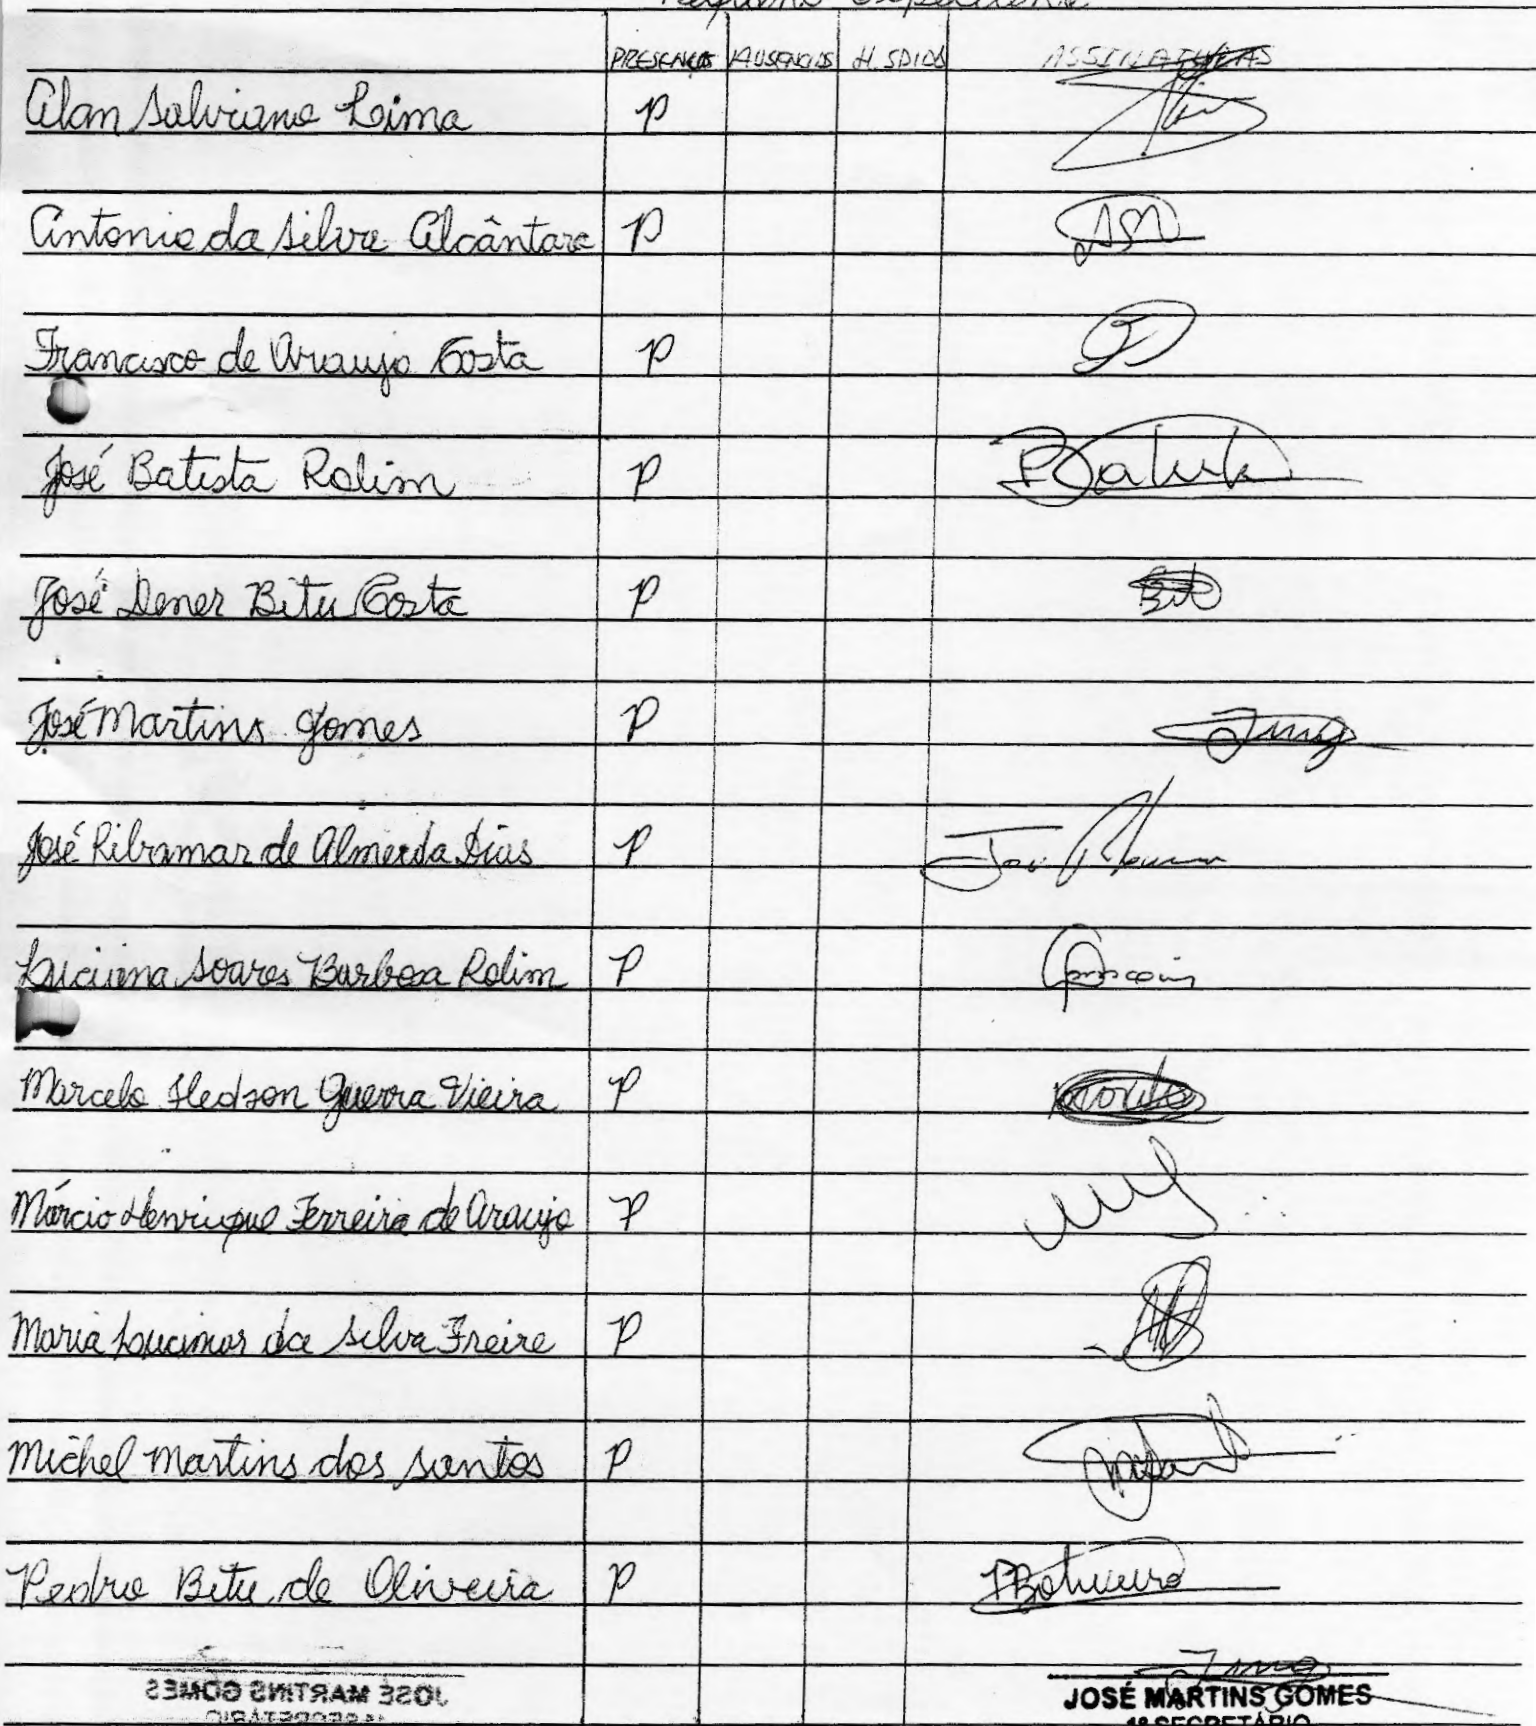 PRESENÇAS AUSENCIAS H. SDIOS ASSINATURAS
Alan Salviano Lima P
Antonio da Silva Alcântara P
Francisco de Araujo Costa P
José Batista Rolim P Batista
José Dener Bitu Costa P Bitu
José Martins Gomes P Jmg
José Ribamar de Almeida Dias P José Ribamar
Luciana Soares Barbosa Rolim P
Marcelo Hedson Guerra Vieira P
Márcio Henrique Ferreira de Araujo P
Maria Lucimar da Silva Freire P
Michel Martins dos Santos P
Pedro Bitu de Oliveira P
Jmg
JOSÉ MARTINS GOMES JOSÉ MARTINS GOMES
1º SECRETÁRIO 1º SECRETÁRIO